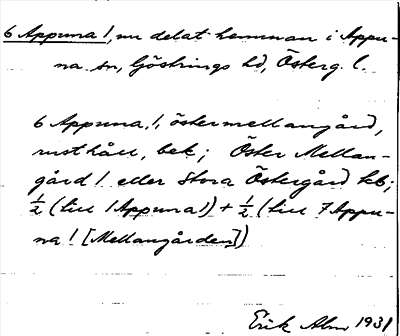 6 Appuna /, nu delat hemman i Appu-
na sn, Göstrings hd, Österg. l.
6 Appuna, /, östermellangård,
rusthåll, bek; Öster Mellan-
gård / eller Stora Östergård kb;
½ (till 1 Appuna /) + ½ (till 7 Appu-
na / [Mellangården])
Erik Alm 1931